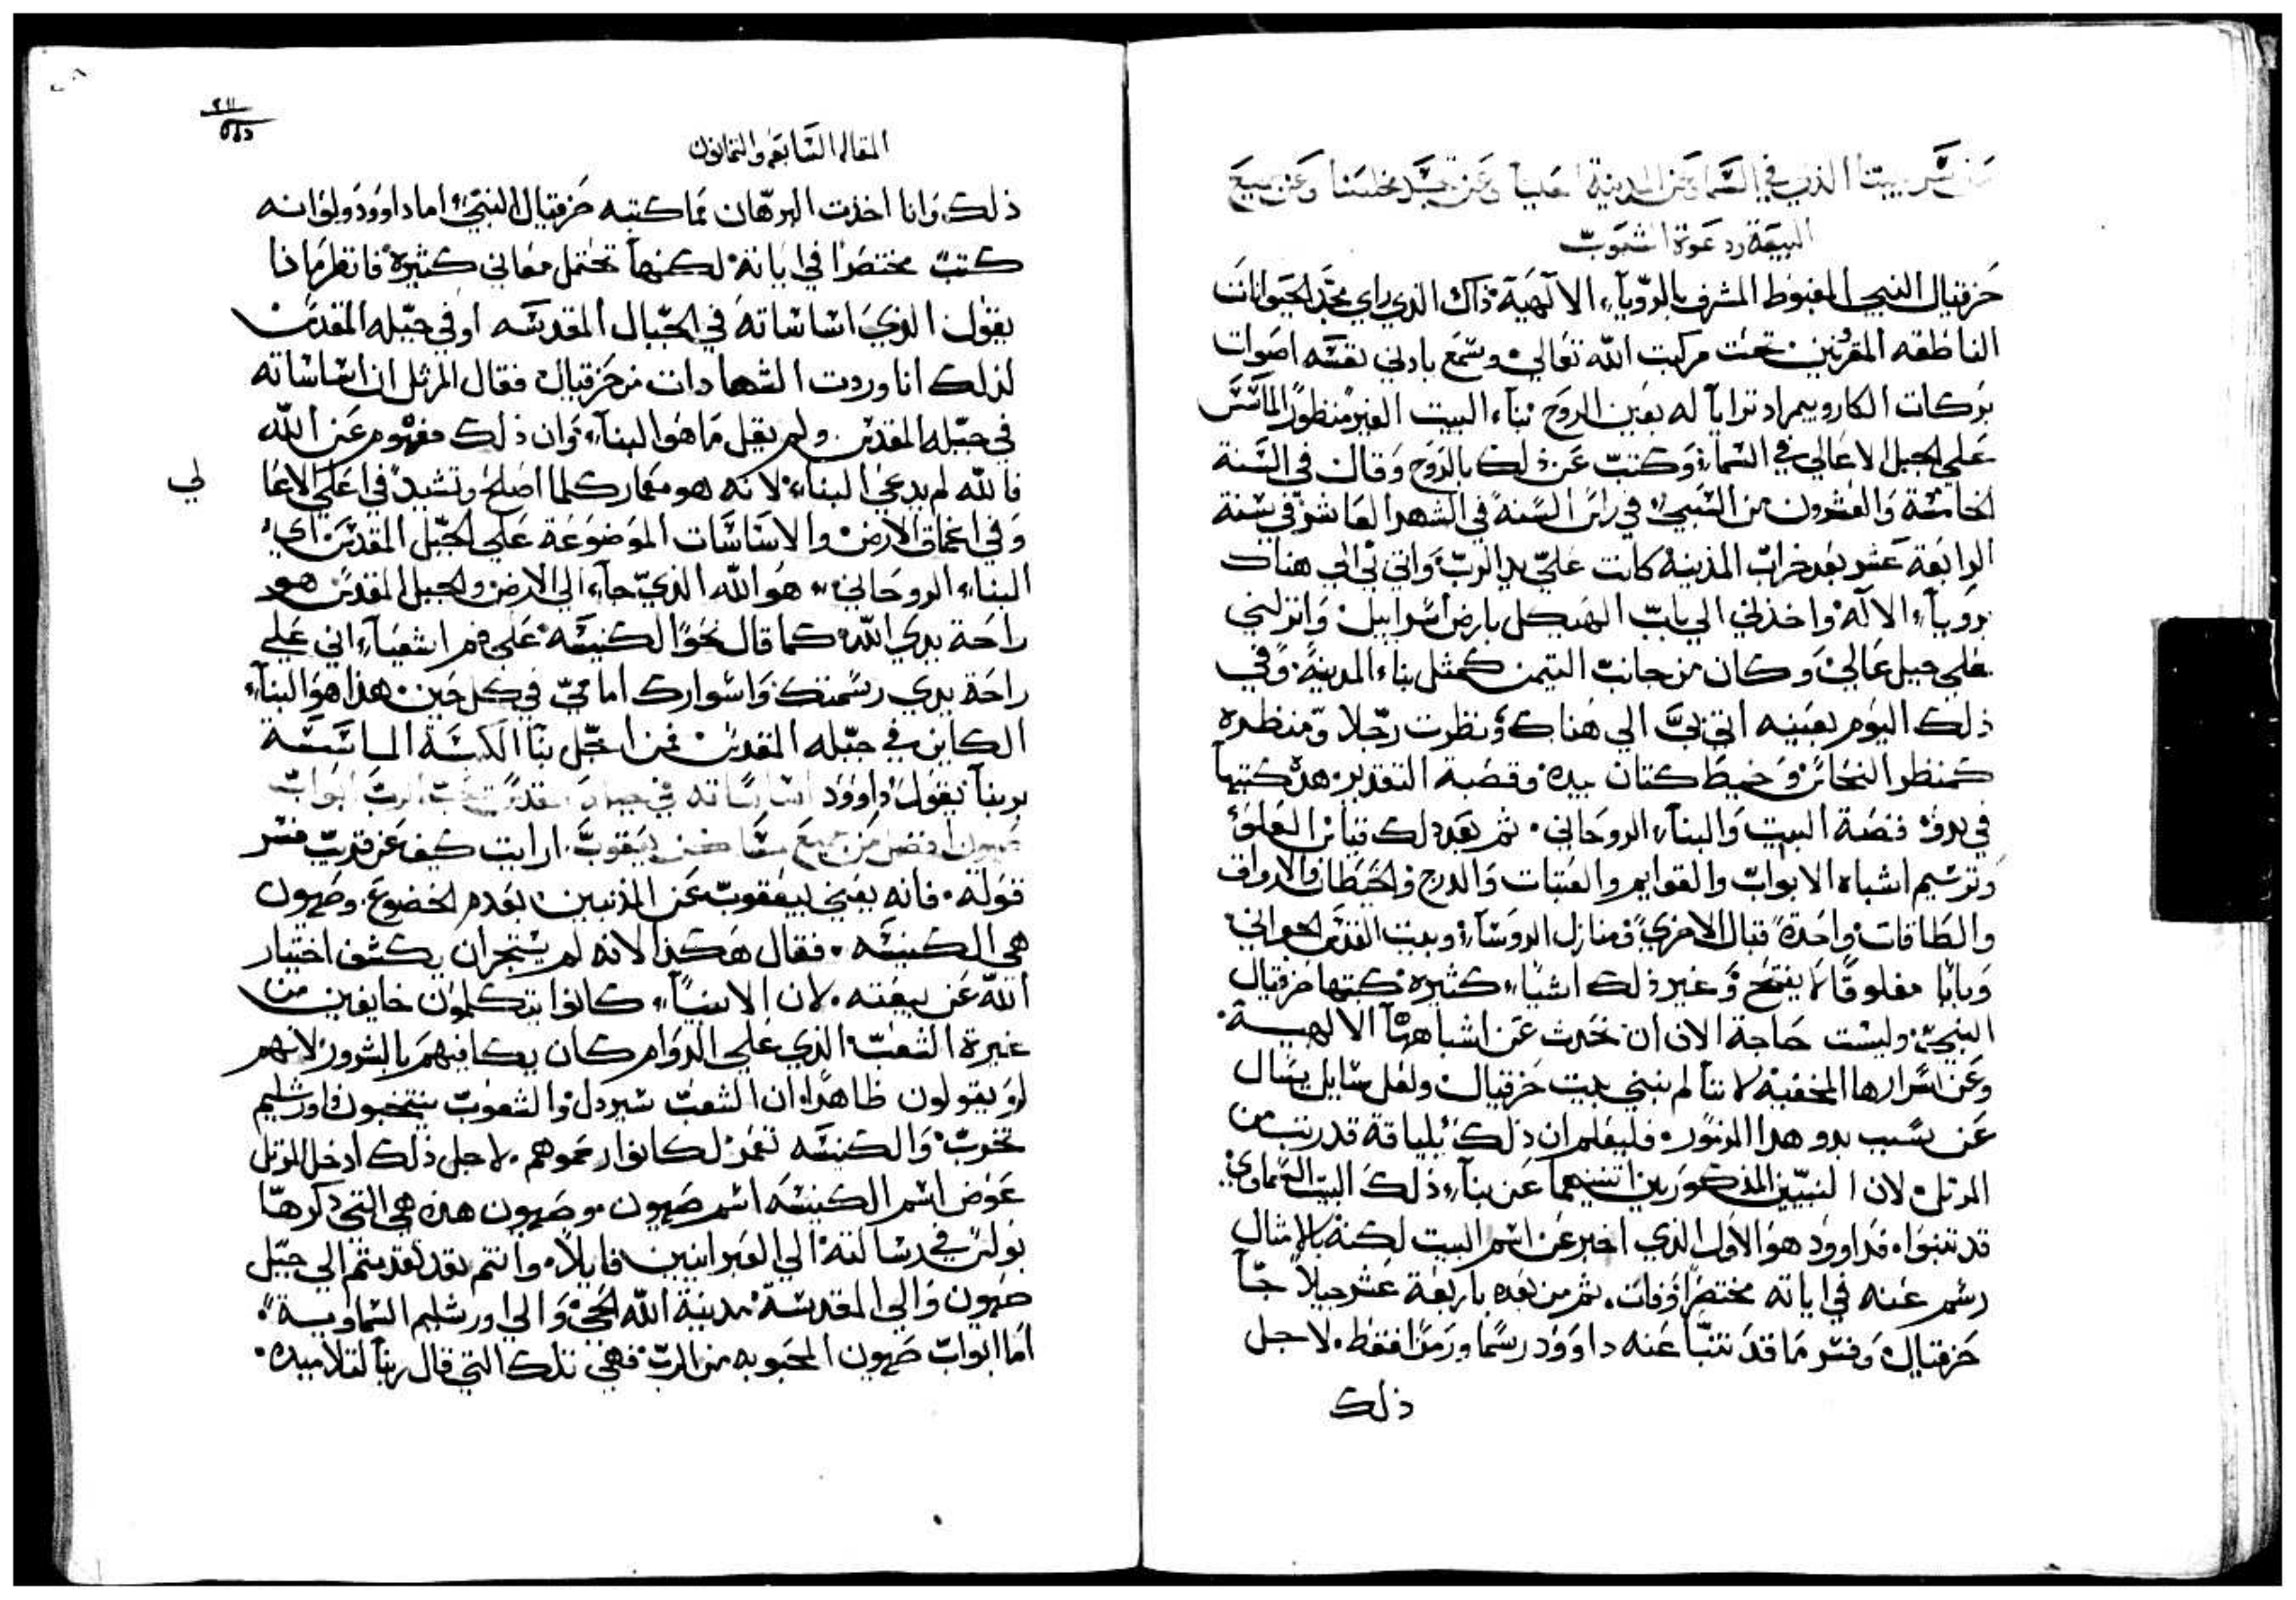 بيتنا الذي في السما وعن المدينة العليا وعن تجسد مخلصنا وعن جميع
البيعة ودعوة الشعوب
حزقيال النبي المغبوط المشرف بالرويآء الالهية ذاك الذي راي مجد الحيوانات
الناطقه المقرنين تحت مركبت الله تعالي وسمع باذني نفسه اصوات
بركات الكاروبيم اد تراياً له بعين الروح بنآء البيت الغير منظور الماسس
علي الجبل الاعالي في السماء وكتب عن ذلك بالروح وقال في السنة
الخامسة والعشرون من السبي في راس السنة في الشهر العاشر في سنة
الرابعة عشر بعد خراب المدينة كانت علي يد الرب واتي بي الي هناك
برويآء الاله واخذني الي باب الهيكل بارض اسراييل وانزلني
علي جبل عالي وكان من جانب التيمن كمثل بناء المدينة وفي
ذلك اليوم بعينه اتي بي الي هناك ونظرت رجلا ومنظره
كمنظر النحاس وخيط كتان بيده وقصبة التقدير هذه كتبها
في بدو قصة البيت والبنآء الروحاني ثم بعد ذلك قياس العلو
وترسيم اشباه الابواب والقوايم والعتبات والدرج والحيطان والارواق
والطاقات واحدة قبال الاخري ومنازل الروسآء وبيت القدس الجواني
وبابا مغلوقا لا يفتح وغير ذلك اشياء كثيره كتبها حزقيال
النبي وليست حاجة الان ان نخبرث عن اشباهها الالهية
وعن اسرارها المخفية لاننا لم نبني بيت حزقيال ولعل سايل يسال
عن سبب بدو هدا المزمور فليعلم ان ذلك بلياقة قد رتب من
المرتل لان النبيين المذكورين اثنينهما عن بنآء ذلك البيت السماوي
قد تنبوا فداوود هو الاول الذي اخبر عن اسم البيت لكنه بالامثال
رسم عنه في اياته مختصرا وفات ثم من بعده باربعة عشر جيلاً جآ
حزقيال وفسر ما قد تنبا عنه داوود رسما ورمزا فقط لاجل
ذلك
المقاله السابعه والثمانون
ذلك وانا اخذت البرهان مما كتبه حزقيال النبي اما داوود ولو انه
كتب مختصرا في اياته لكنها تحتمل معاني كثيرة فانظر ماذا
يقول الذي اساساته في الجبال المقدسه او في جبله المقدس
لذلك انا وردت الشهادات من حزقيال فقال المرتل ان اساساته
في جبله المقدس ولم يقل ما هو البنآء وان ذلك مفهوم عن الله
فالله لم يدعي البناء لانه هو معمار كلما اصلح وتشيد في اعلي الاعا
لي
وفي اعماق الارض والاساسات الموضوعة علي الجبل المقدس اي
البناء الروحاني هو الله الذي جآء الي الارض والجبل المقدس هو
راحة يدي الله كما قال نحو الكنيسه علي فم اشعيآء اني علي
راحة يدي رسمتك واسوارك امامي في كل حين هذا هو البنآء
الكاين في جبله المقدس فمن اجل بنآ الكنيسة الماسسة
بربنا يقول داوود اساساته في جباله المقدسة يحب الرب ابواب
صهيون افضل من جميع مساكن يعقوب ارايت كيف عن قريب فسر
قوله فانه يعني بيعقوب عن المذنبين بعدم الخضوع وصهيون
هي الكنيسه فقال هكذا لانه لم يستجران يكشف اختيار
الله عن بيعته لان الانبيآء كانوا يتكلمون خايفين من
غيرة الشعب الذي علي الدوام كان يكافيهم بالشرور لانهم
لو يقولون ظاهرا ان الشعب سيردل والشعوب ينتخبون واورشليم
تخرب والكنيسه تعمر لكانوا رجموهم لاجل ذلك ادخل المرتل
عوض اسم الكنيسه اسم صهيون وصهيون هذه هي التي ذكرها
بولس في رسالته الي العبرانيين قايلاً وانتم بعد تقدمتم الي جبل
صهيون والي المقدسة مدينة الله الحي والي اورشليم السماوية
اما ابواب صهيون المحبوبه من الرب فهي تلك التي قال ربنا لتلاميده